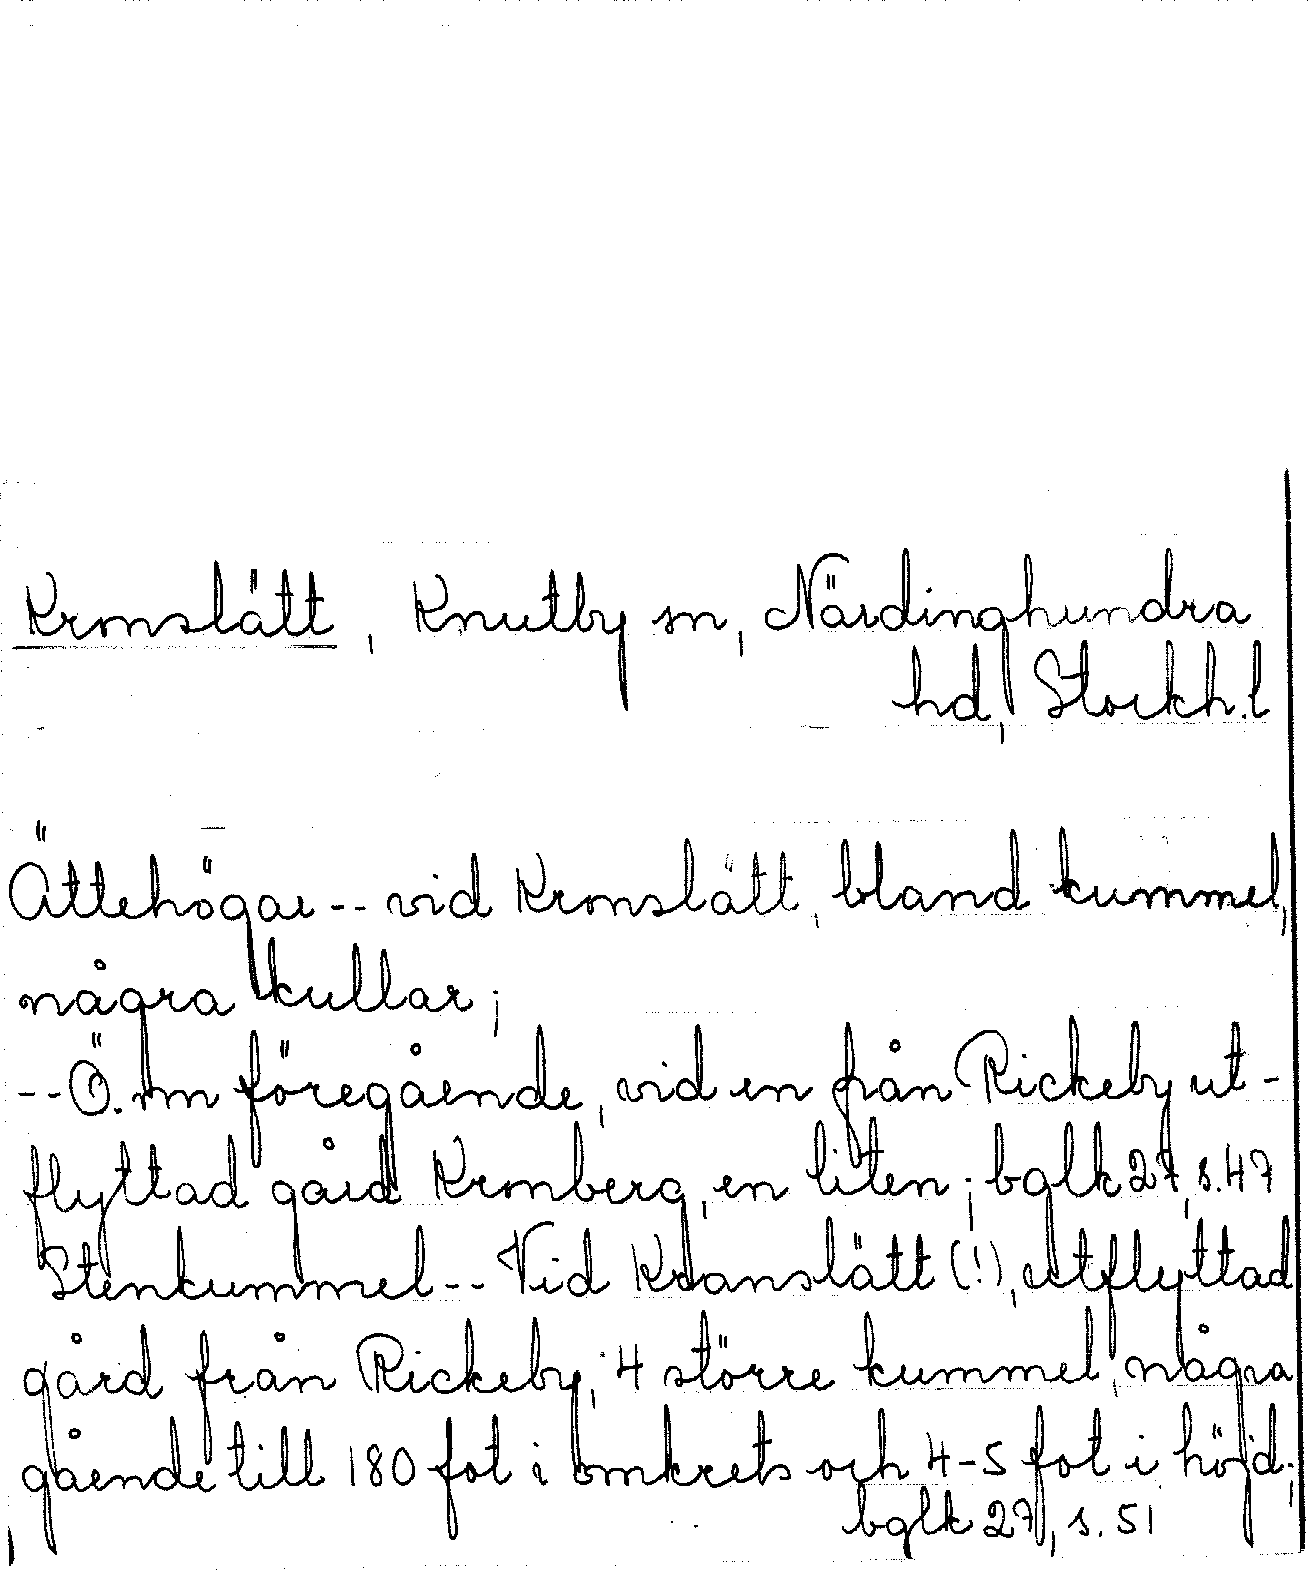 Kronslätt, Knutby sn, Närdinghundra
hd, Stockh.l
Ättehögar -- vid Kronslätt, bland kummel,
några kullar;
-- Ö. om föregående, vid en från Rickeby ut-
flyttad gård Kronberg, en liten; bglk 27, s. 47
Stenkummel -- Vid Kranslätt (!), utflyttad
gård från Rickeby, 4 större kummel, några
gående till 180 fot i omkrets och 4-5 fot i höjd;
bglk 27, s. 51